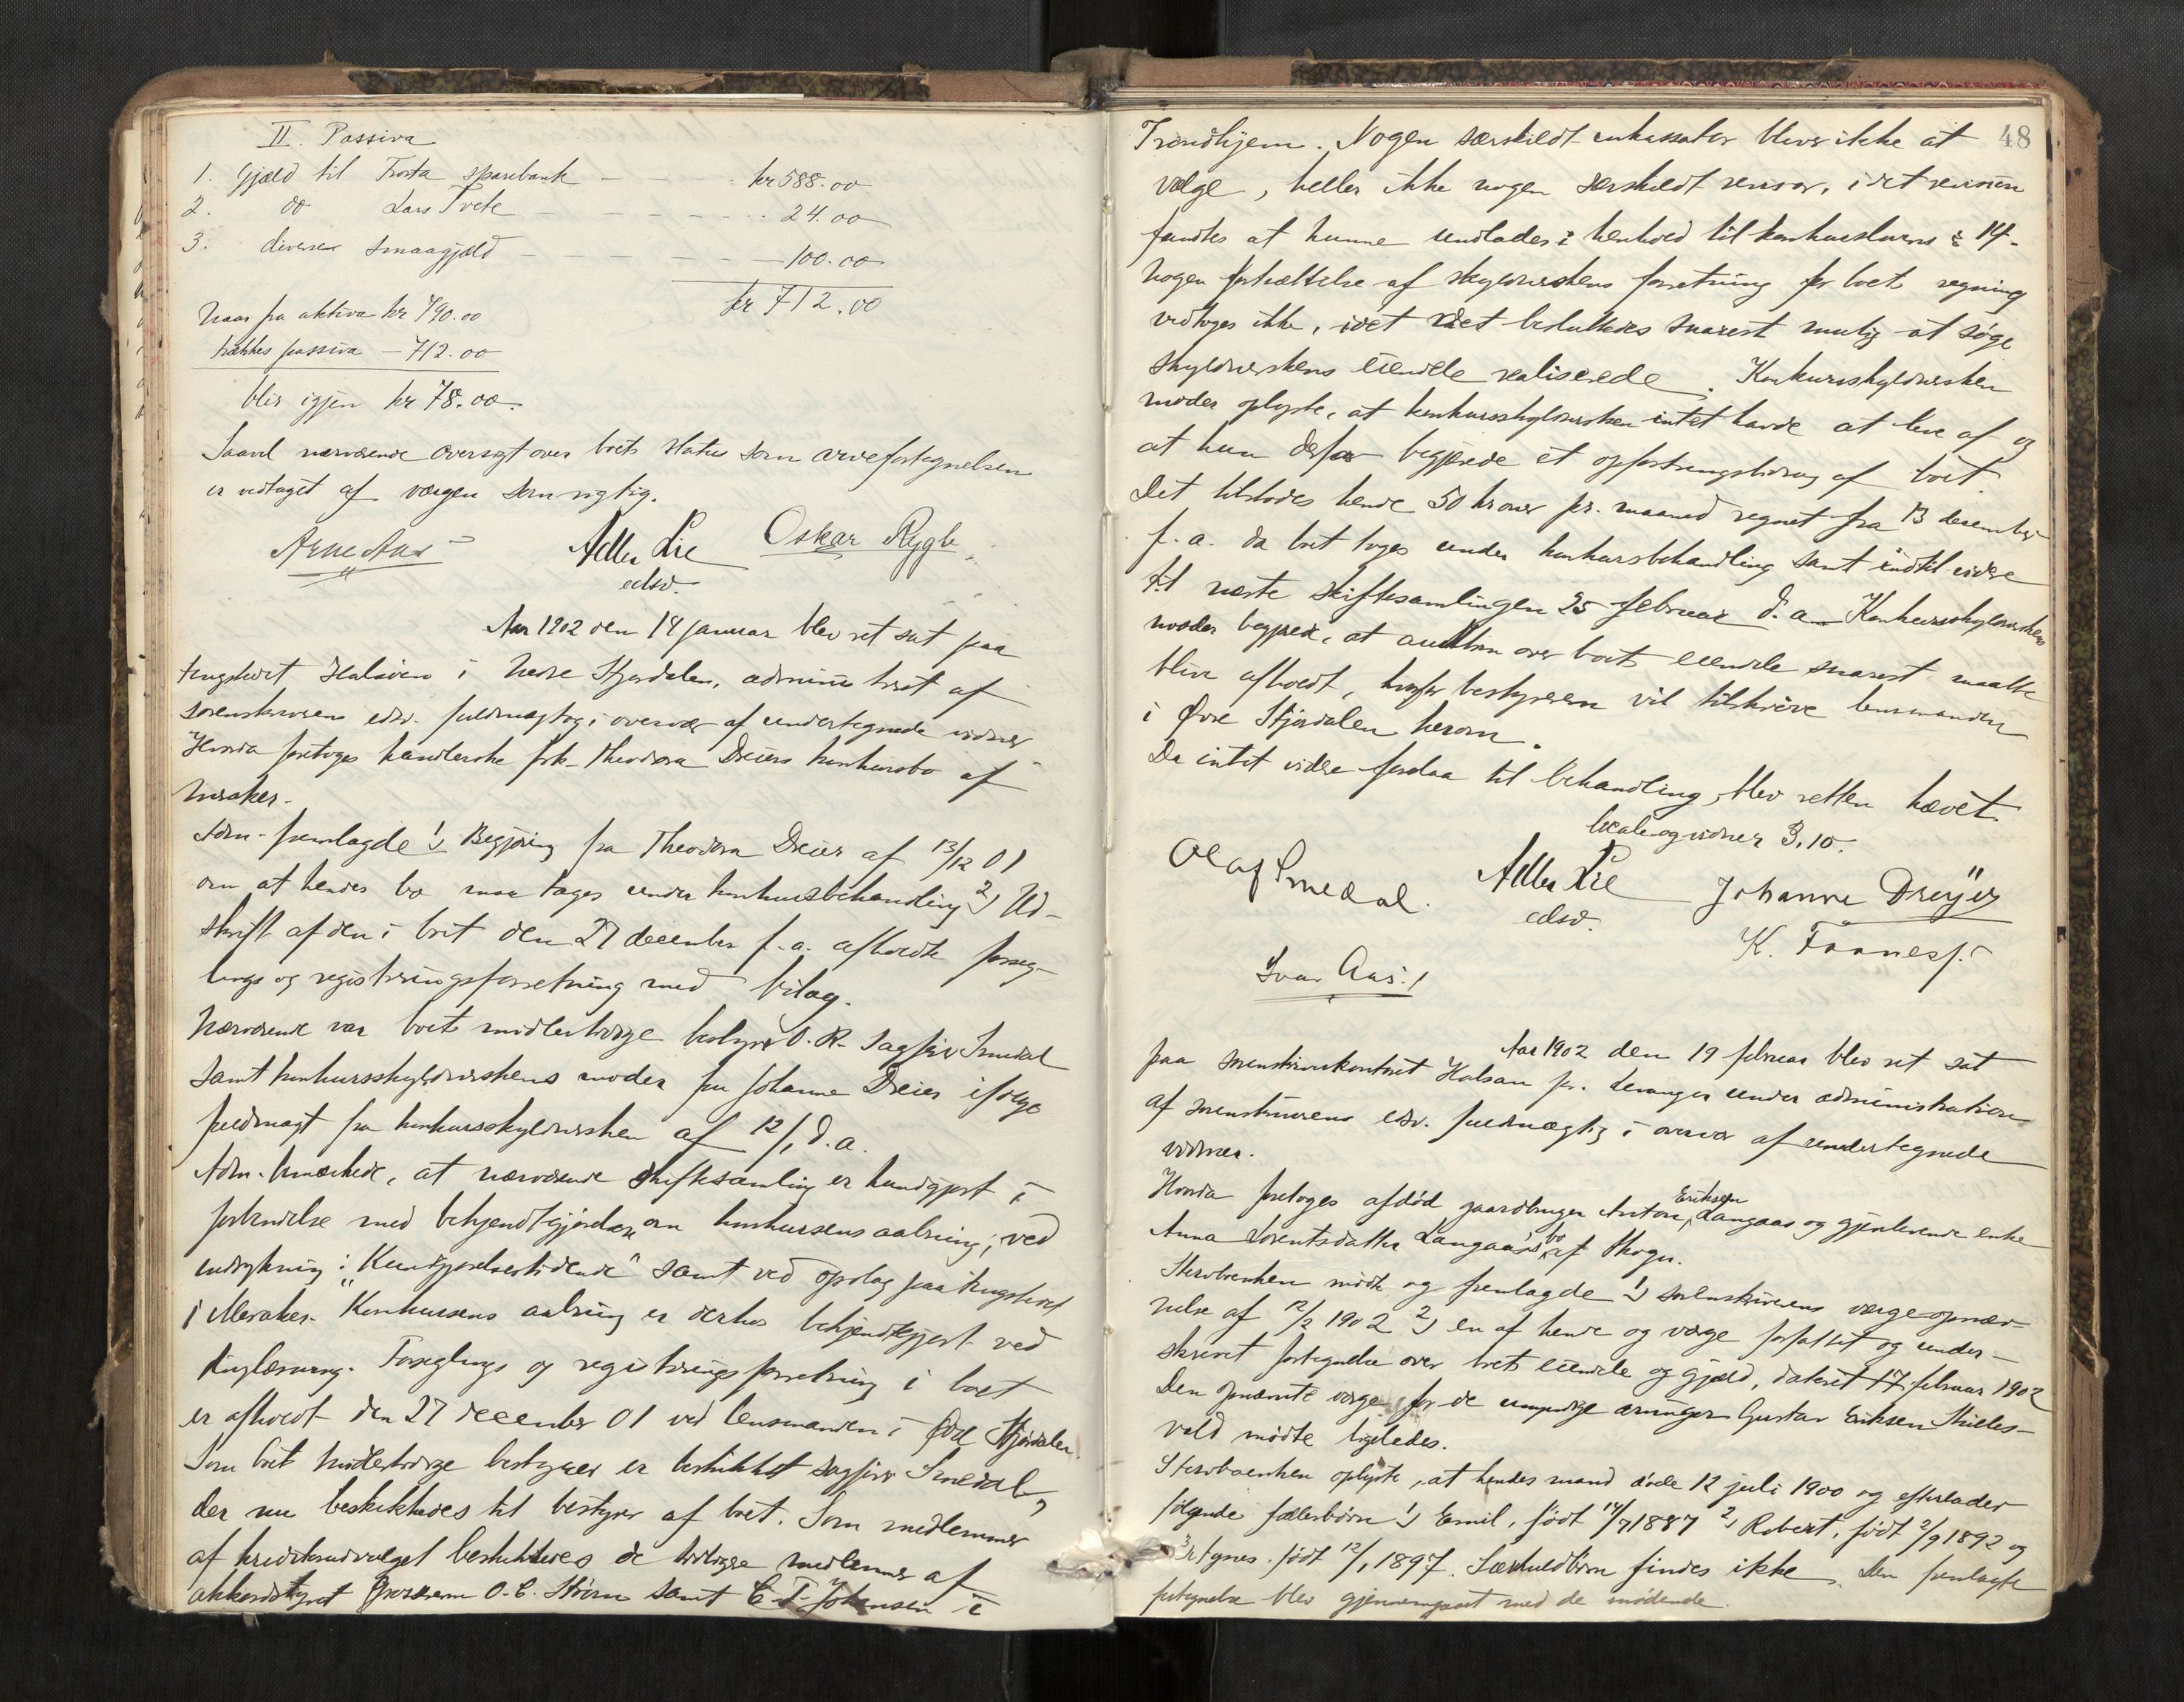 II. Passiva
1. Gjæld til Frosta sparebank - - - kr 588.00
2. do Lars Tvete - - - - - - 24.00
3. diverse smaagjæld - - - - - - 100.00
kr 712.00
Naar fra aktiva kr 790.00
trækkes passiva - 712.00
blir igjen kr 78.00.
Saavel nærværende oversigt over boets status som arvefortegnelsen
er vedtaget af værgen som rigtig.
Arne Aas Adler Lie Oskar Rygh
edsv.
Aar 1902 den 14 januar blev ret sat paa
tingstedet Halsøien i Nedre Stjørdalen, administreret af
sorenskriverens edsv. fuldmægtig i overvær af undertegnede vidner
Hvorda foretoges handlerske frk. Theodora Dreiers konkursbo af
Meraker.
Adm. fremlagde 1) Begjæring fra Theodora Dreier af 13/12 01
om at hendes bo maa tages under konkursbehandling 2) Ud-
skrift af den i boet den 27 december f.a. afholdte forseg-
lings og registreringsforretning med bilag.
Nærværende var boets midlertidige bestyrer O.R. sagfører Smedal
samt konkursskyldnerskens moder fru Johanne Dreier ifølge
fuldmagt fra konkursskyldnersken af 12/1 d.a.
Adm. bemærkede, at nærværende skiftesamling er kundgjort i
forbindelse med bekjendtgjørelsen om konkursens aabning, ved
indrykning i "Kundgjørelsestidende" samt ved opslag paa tingstedet
i Meraker. Konkursens aabning er derhos bekjendtgjort ved
tinglæsning. Forseglings og registreringsforretning i boet
er afholdt den 27 december 01 ved lensmanden i Øvre Stjørdalen
Som boets midlertidige bestyrer er beskikket sagfører Smedal,
der nu beskikkedes til bestyrer af boet. Som medlemmer
af kreditorudvalget beskikkedes de tidligere medlemmer af
akkordstyret O.C. samt C.T. Johansen i
48
Trondhjem. Nogen særskildt inkassator blev ikke at
vælge, heller ikke nogen særskildt revisor, idet revision
fandtes at kunne undlades i henhold til konkurslovens § 14.
Nogen fortsættelse af skyldnerskens forretning for boets regning
vedtoges ikke, idet det besluttedes snarest mulig at søge
skyldnerskens eiendele realiserede. Konkursskyldnersken
moder oplyste, at konkursskyldnersken intet havde at leve af og
at hun derfor begjærede et opfostringsbidrag af boet.
Det tilstodes hende 50 kroner pr. maaned regnet fra 13 december
f.a. da boet toges under konkursbehandling samt indtil videre
til næste skiftesamlingen 25 februar d.a. Konkursskyldnerskens
moder begjærede, at auktion over boets eiendele snarest maatte
blive afholdt, hvorfor bestyreren vil tilskrive lensmanden
i Øvre Stjørdalen herom.
Da intet videre forelaa til behandling, blev retten hævet.
lokale og vidner 3,10.
Olaf Smedal. Adler Lie Johanne Dreÿer
edsv. K. Faanes.
Ivar Aas.
Aar 1902 den 19 februar blev ret sat
paa sorenskriverkontoret Halsan pr. Levanger under administration
af sorenskriverens edsv. fuldmægtig i overvær af undertegnede
vidner.
Hvorda foretoges afdød gaardbruger Anton Eriksen Langaas og gjenlevende enke
Anna Lorentsdatter Langaas's bo af Skogn.
Stervboenken mødte og fremlagde 1) sorenskriverens værgeopnæv-
nelse af 12/2 1902 2) en af hende og værge forfattet og under-
skrevet fortegnelse over boets eiendele og gjæld, dateret 17 februar 1902
Den opnævnte værge for de umyndige arvinger Gustav Eriksen Skieles-
vold mødte ligeledes.
Stervboenken oplyste, at hendes mand døde 12 juli 1900 og efterlader
følgende fællesbørn 1) Emil, født 14/7 1887 2) Robert, født 2/9 1892 og
3) Agnes, født 12/1 1897. Særkuldbørn findes ikke. Den fremlagte
fortegnelse blev gjennemgaaet med de mødende.